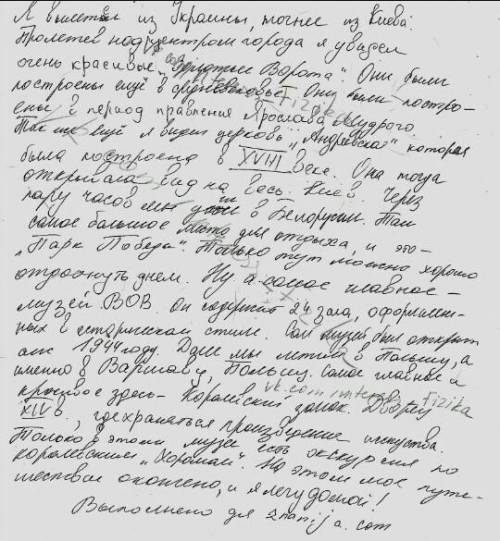 Я вылетел из Украины, точнее из Киева.
Пролетев над центром города я увидел
очень красивые „Золотые Ворота“. Они были
построены ещё в средневековье. Они были постро-
ены в период правления Ярослава Мудрого.
Так же ещё я видел церковь „Андреевская“ которая
была построена в XVIII веке. Она тогда
открывала вид на весь Киев. Через
пару часов мы в Белоруссии. Там
самое большое место для отдыха, и это -
„Парк Победа“. Только тут можно хорошо
отдохнуть днём. Ну а самое главное -
музей ВОВ. Он содержит 24 зала, оформлен-
ных в старинном стиле. Сам музей был открыт
1944 году. Далее мы летим в Польшу, а
именно в Варшаву, Польшу. Самое главное и
красивое здесь - Королевский замок. Дворец
XIV в., где храняться произведение искуства.
Только в этом музее есть экскурсия по
королевским „Хоромам“. На этом мое путе-
шествие окончено, и я лечу домой!
Выполнено для znanija.com
vk.com Fizika